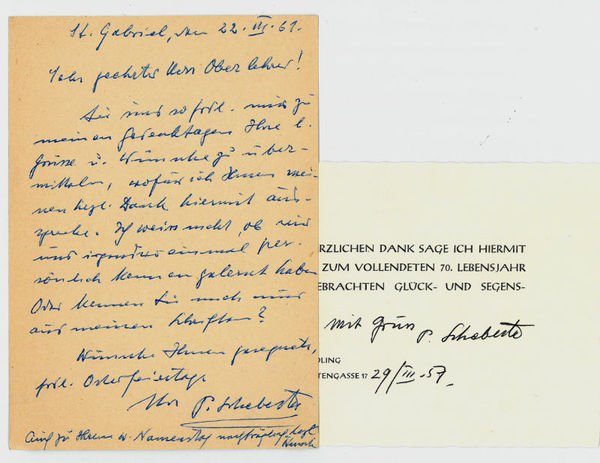 St. Gabriel, den 22. III. 61.
Sehr geehrter Herr Oberlehrer!
Sie sind so frdl. mir zu
meinen Gedenktagen Ihre l.
Grüsse u. Wünsche zu über-
mitteln, wofür ich Ihnen mei-
nen hzgl. Dank hiermit aus-
spreche. Ich weiss nicht, ob wir
uns irgendwo einmal per-
sönlich kennen gelernt haben
Oder kennen Sie mich nur
aus meinen Schriften?
Wünsche Ihnen gesegnete,
frdl. Osterfeiertage
Ihr P. Schebesta
Auch zu Ihrem w. Namenstag nachträglich hzgl.
RZLICHEN DANK SAGE ICH HIERMIT
ZUM VOLLENDETEN 70. LEBENSJAHR
EBRACHTEN GLÜCK- UND SEGENS-
Mit Gruss P. Schebesta
DLING
TENGASSE 17 29/III. 57.